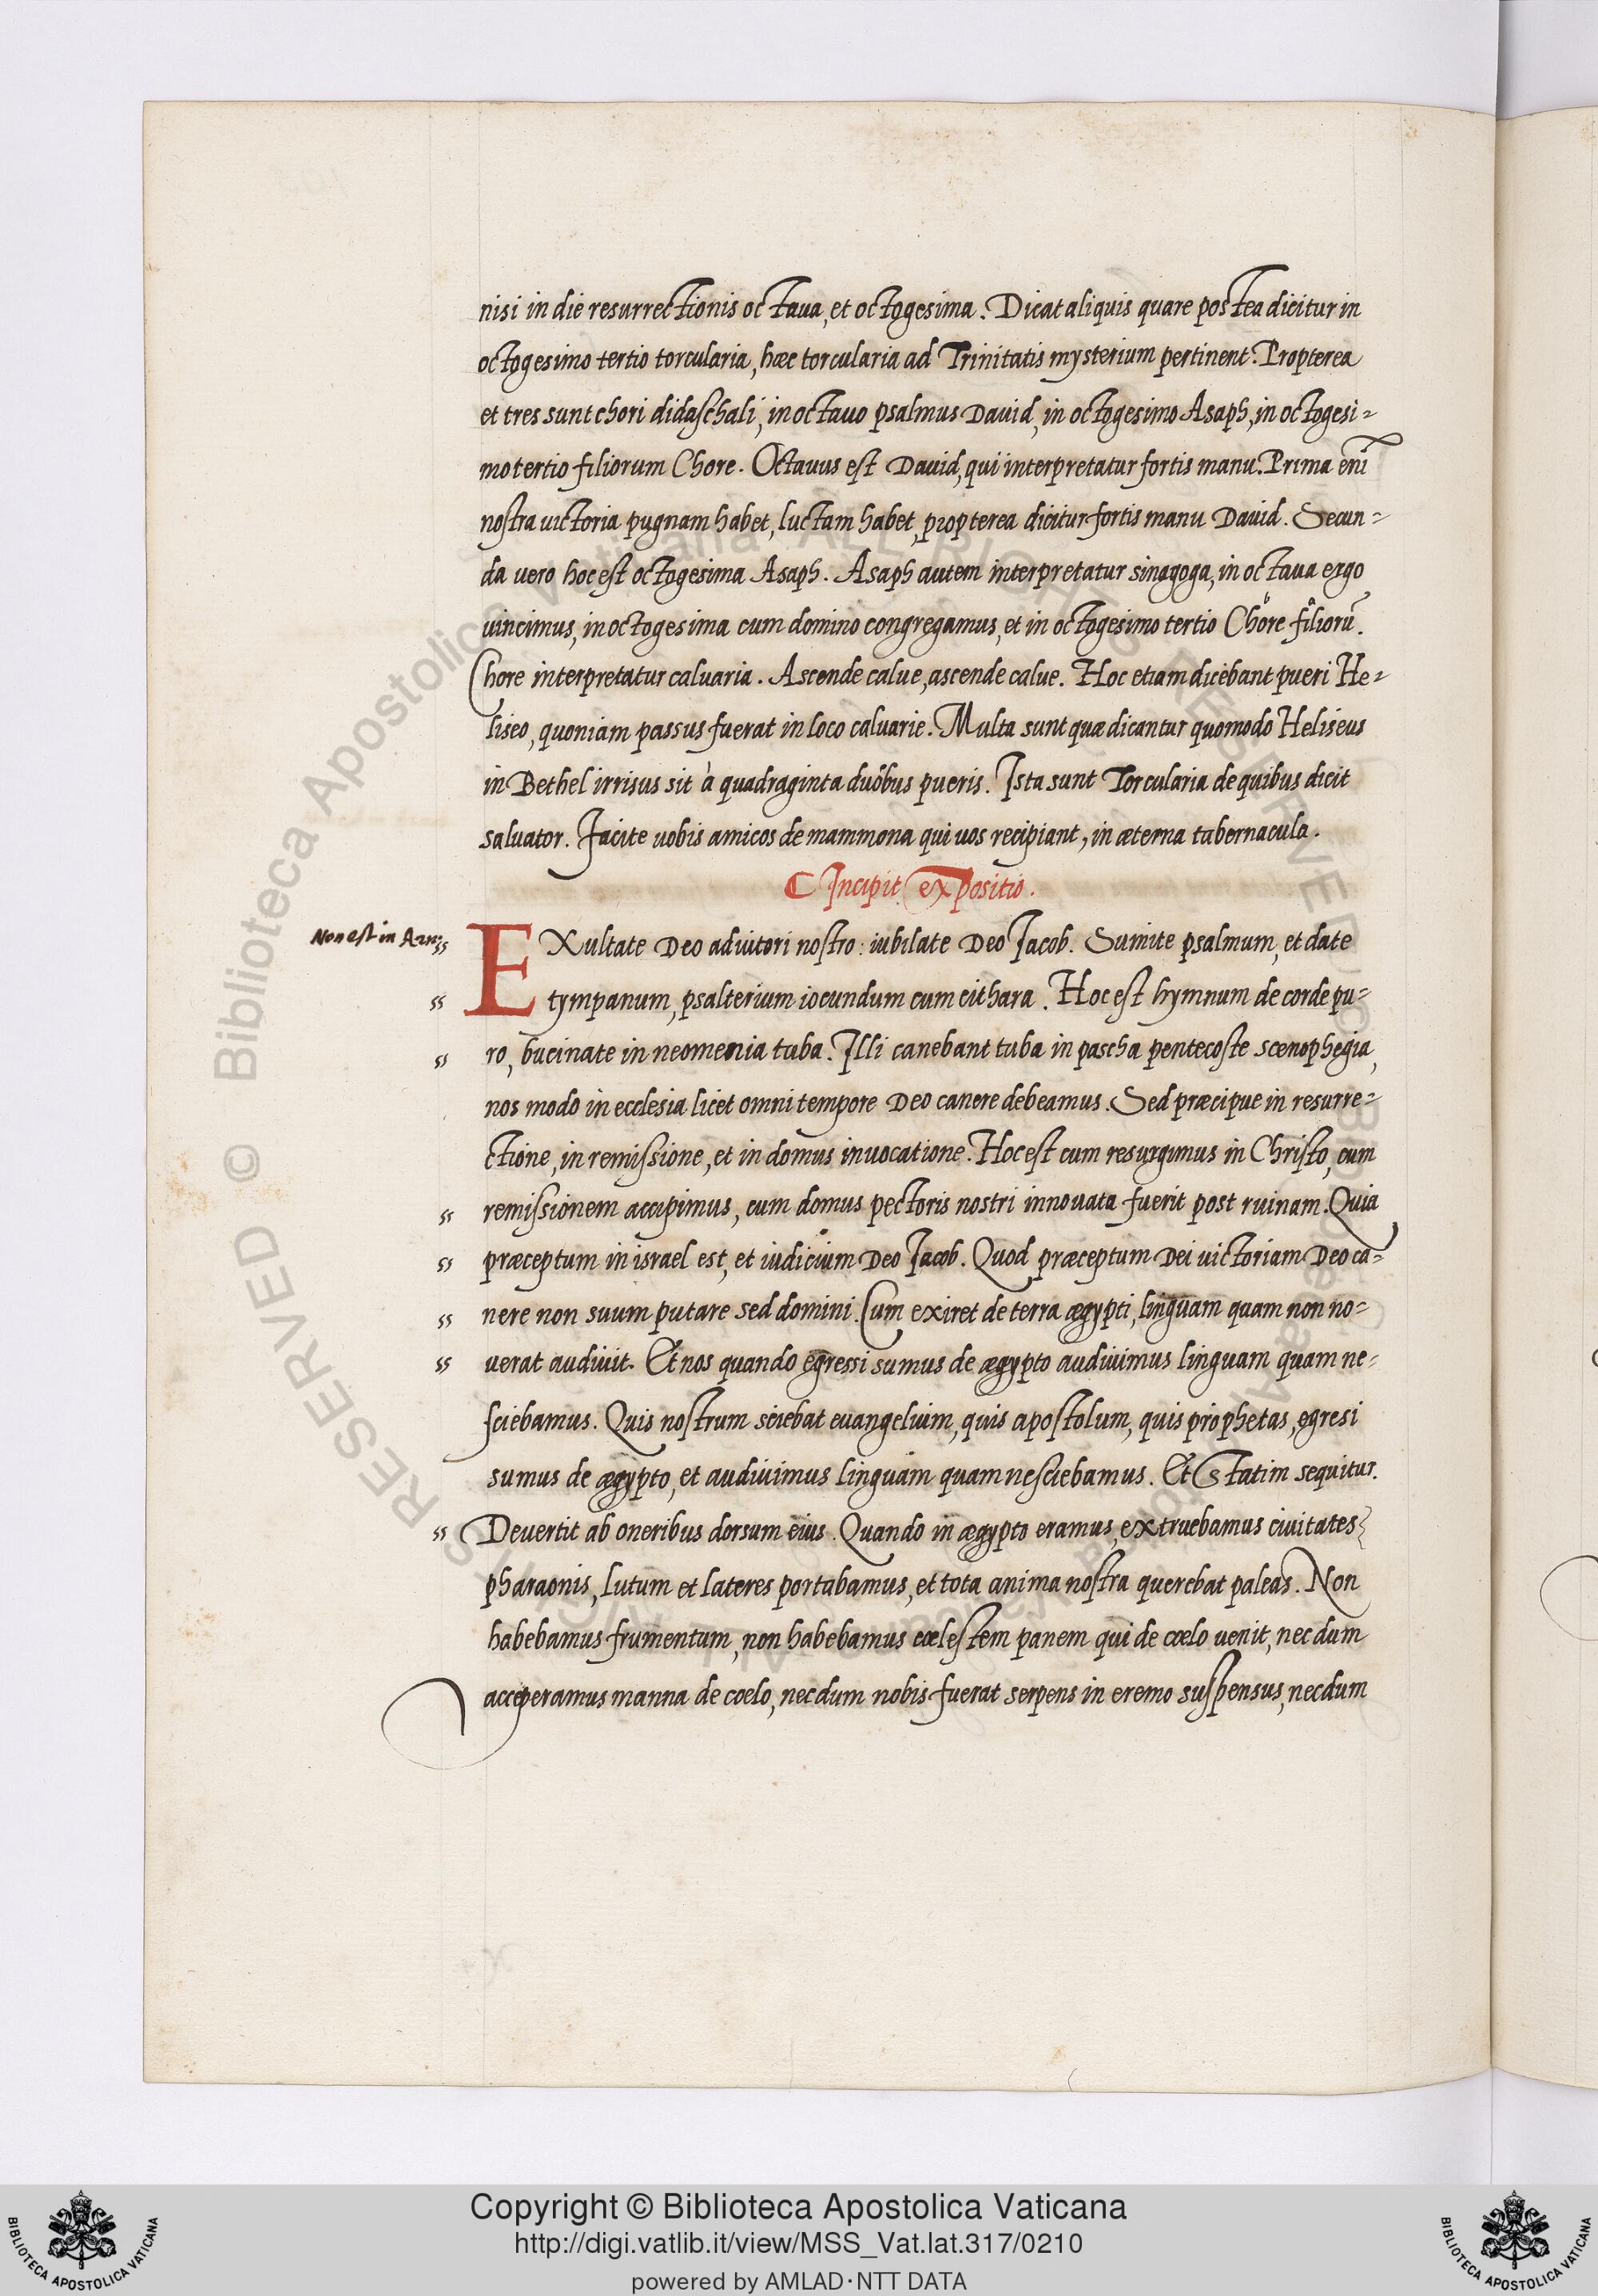 nisi in die resurrectionis octaua, et octogesima. Dicat aliquis quare postea dicitur in
octogesimo tertio torcularia, hæc torcularia ad Trinitatis mysterium pertinent. Propterea
et tres sunt chori didaschali, in octauo psalmus Dauid, in octogesimo Asaph, in octogesi-
mo tertio filiorum Chore. Octauus est Dauid, qui interpretatur fortis manu. Prima eni
nostra uictoria pugnam habet, luctam habet, propterea dicitur fortis manu Dauid. Secun-
da uero hoc est octogesima Asaph. Asaph autem interpretatur sinagoga, in octaua ergo
uincimus, in octogesima cum domino congregamus, et in octogesimo tertio Chore filiorū.
Chore interpretatur caluaria. Ascende calue, ascende calue. Hoc etiam dicebant pueri He-
liseo, quoniam passus fuerat in loco caluarie. Multa sunt quæ dicantur quomodo Heliseus
in Bethel irrisus sit à quadraginta duobus pueris. Ista sunt Torcularia de quibus dicit
saluator. Facite uobis amicos de mammona qui uos recipiant, in æterna tabernacula.
Incipit expositio.
Non est in
EXultate Deo adiutori nostro: iubilate Deo Jacob. Sumite psalmum, et date
tympanum, psalterium iocundum cum cithara. Hoc est hymnum de corde pu-
ro, bucinate in neomenia tuba. Illi canebant tuba in pascha pentecoste scenophegia,
nos modo in ecclesia licet omni tempore Deo canere debeamus. Sed præcipue in resurre-
ctione, in remissione, et in domus inuocatione. Hoc est cum resurgimus in Christo, cum
remissionem accipimus, cum domus pectoris nostri innouata fuerit post ruinam. Quia
præceptum in israel est, et iudicium Deo Jacob. Quod præceptum Dei uictoriam Deo ca-
nere non suum putare sed domini. Cum exiret de terra ægypti, linguam quam non no-
uerat audiuit. Et nos quando egressi sumus de ægypto audiuimus linguam quam ne-
sciebamus. Quis nostrum sciebat euangelium, quis apostolum, quis prophetas, egresi
sumus de ægypto, et audiuimus linguam quam nesciebamus. Et statim sequitur.
Deuertit ab oneribus dorsum eius. Quando in ægypto eramus, extruebamus ciuitates
pharaonis, lutum et lateres portabamus, et tota anima nostra querebat paleas. Non
habebamus frumentum, non habebamus cœlestem panem qui de cœlo uenit, nec dum
acceperamus manna de coelo, nec dum nobis fuerat serpens in eremo suspensus, necdum
© Biblioteca Apostolica Vaticana
ALL RIGHTS RESERVED
Copyright © Biblioteca Apostolica Vaticana
http://digi.vatlib.it/view/MSS_Vat.lat.317/0210
powered by AMLAD·NTT DATA
BIBLIOTECA APOSTOLICA VATICANA
BIBLIOTECA APOSTOLICA VATICANA